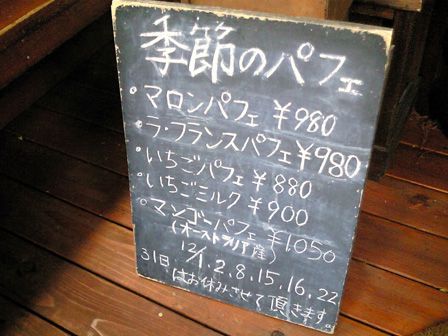 季節のパフェ
・マロンパフェ ¥980
・ラ・フランスパフェ ¥980
・いちごパフェ ¥880
・いちごミルク ¥900
・マンゴーパフェ ¥1050
(オーストラリア産)
12/1.2.8.15.16.22
31日はお休みさせて頂きます。